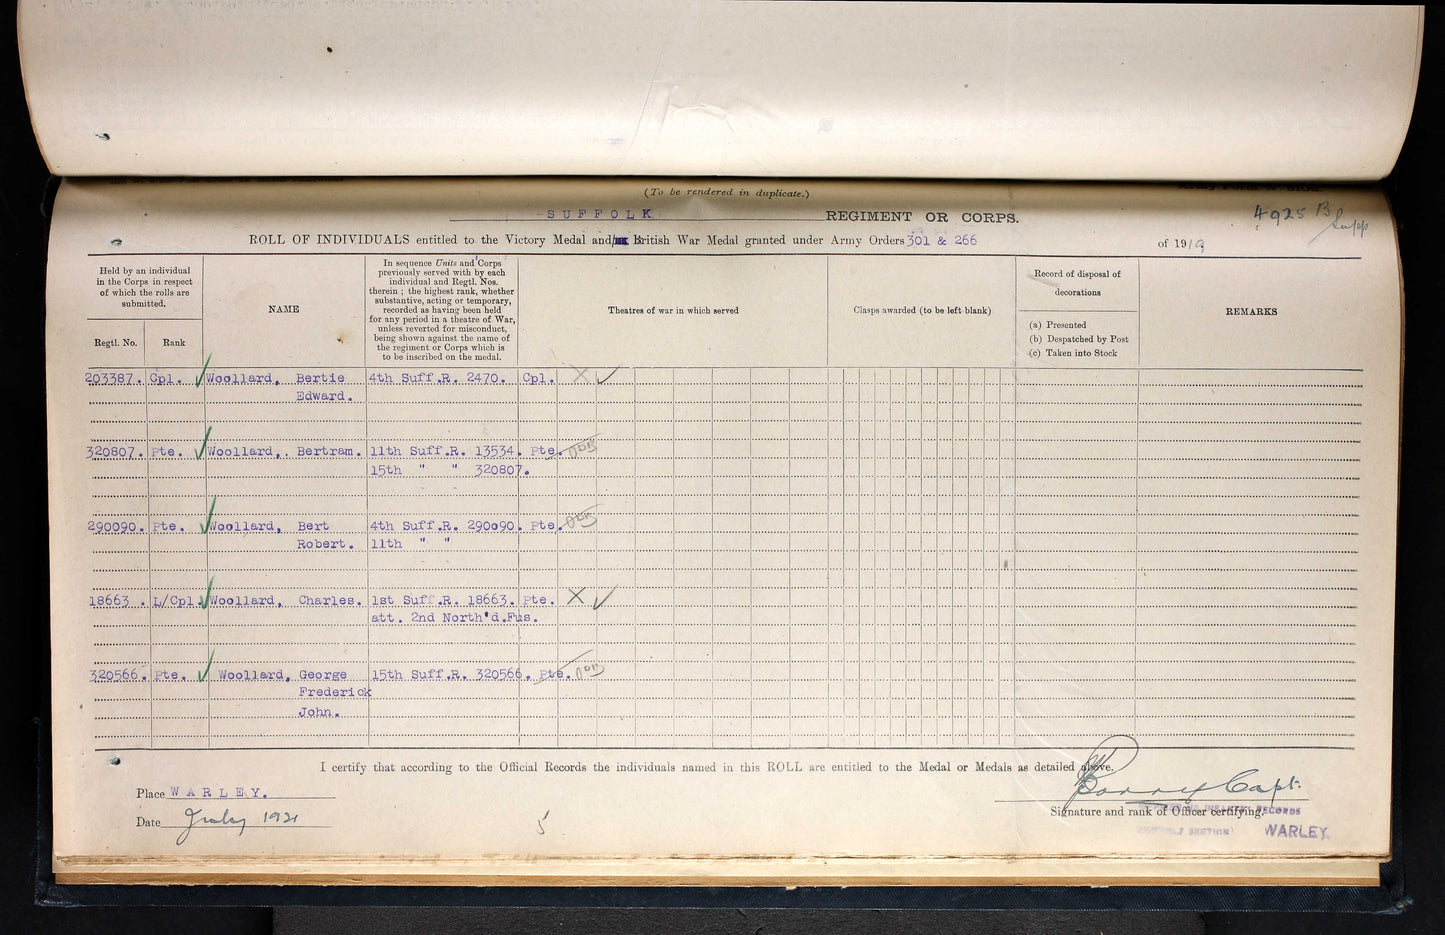 (To be rendered in duplicate.)
SUFFOLK REGIMENT OR CORPS.
4925 B Supp
ROLL OF INDIVIDUALS entitled to the Victory Medal and/or British War Medal granted under Army Orders 301 & 266 of 1919
Held by an individual
in the Corps in respect
of which the rolls are
submitted.
Regtl. No. Rank
NAME
In sequence Units and Corps
previously served with by each
individual and Regtl. Nos.
therein ; the highest rank, whether
substantive, acting or temporary,
recorded as having been held
for any period in a theatre of War,
unless reverted for misconduct,
being shown against the name of
the regiment or Corps which is
to be inscribed on the medal.
Theatres of war in which served
Clasps awarded (to be left blank)
Record of disposal of
decorations
(a) Presented
(b) Despatched by Post
(c) Taken into Stock
REMARKS
203387. Cpl. Woollard, Bertie 4th Suff.R. 2470. Cpl.
Edward.
320807. Pte. Woollard,. Bertram. 11th Suff.R. 13534. Pte.
15th " " 320807.
290090. Pte. Woollard, Bert 4th Suff.R. 290090. Pte.
Robert. 11th " "
18663 . L/Cpl. Woollard, Charles. 1st Suff.R. 18663. Pte.
att. 2nd North'd.Fus.
320566. Pte. Woollard, George 15th Suff.R. 320566. Pte.
Frederick
John.
I certify that according to the Official Records the individuals named in this ROLL are entitled to the Medal or Medals as detailed above.
Place WARLEY.
Capt.
Date July 1921
5
Signature and rank of Officer certifying.
RECORDS
SECTION) WARLEY.